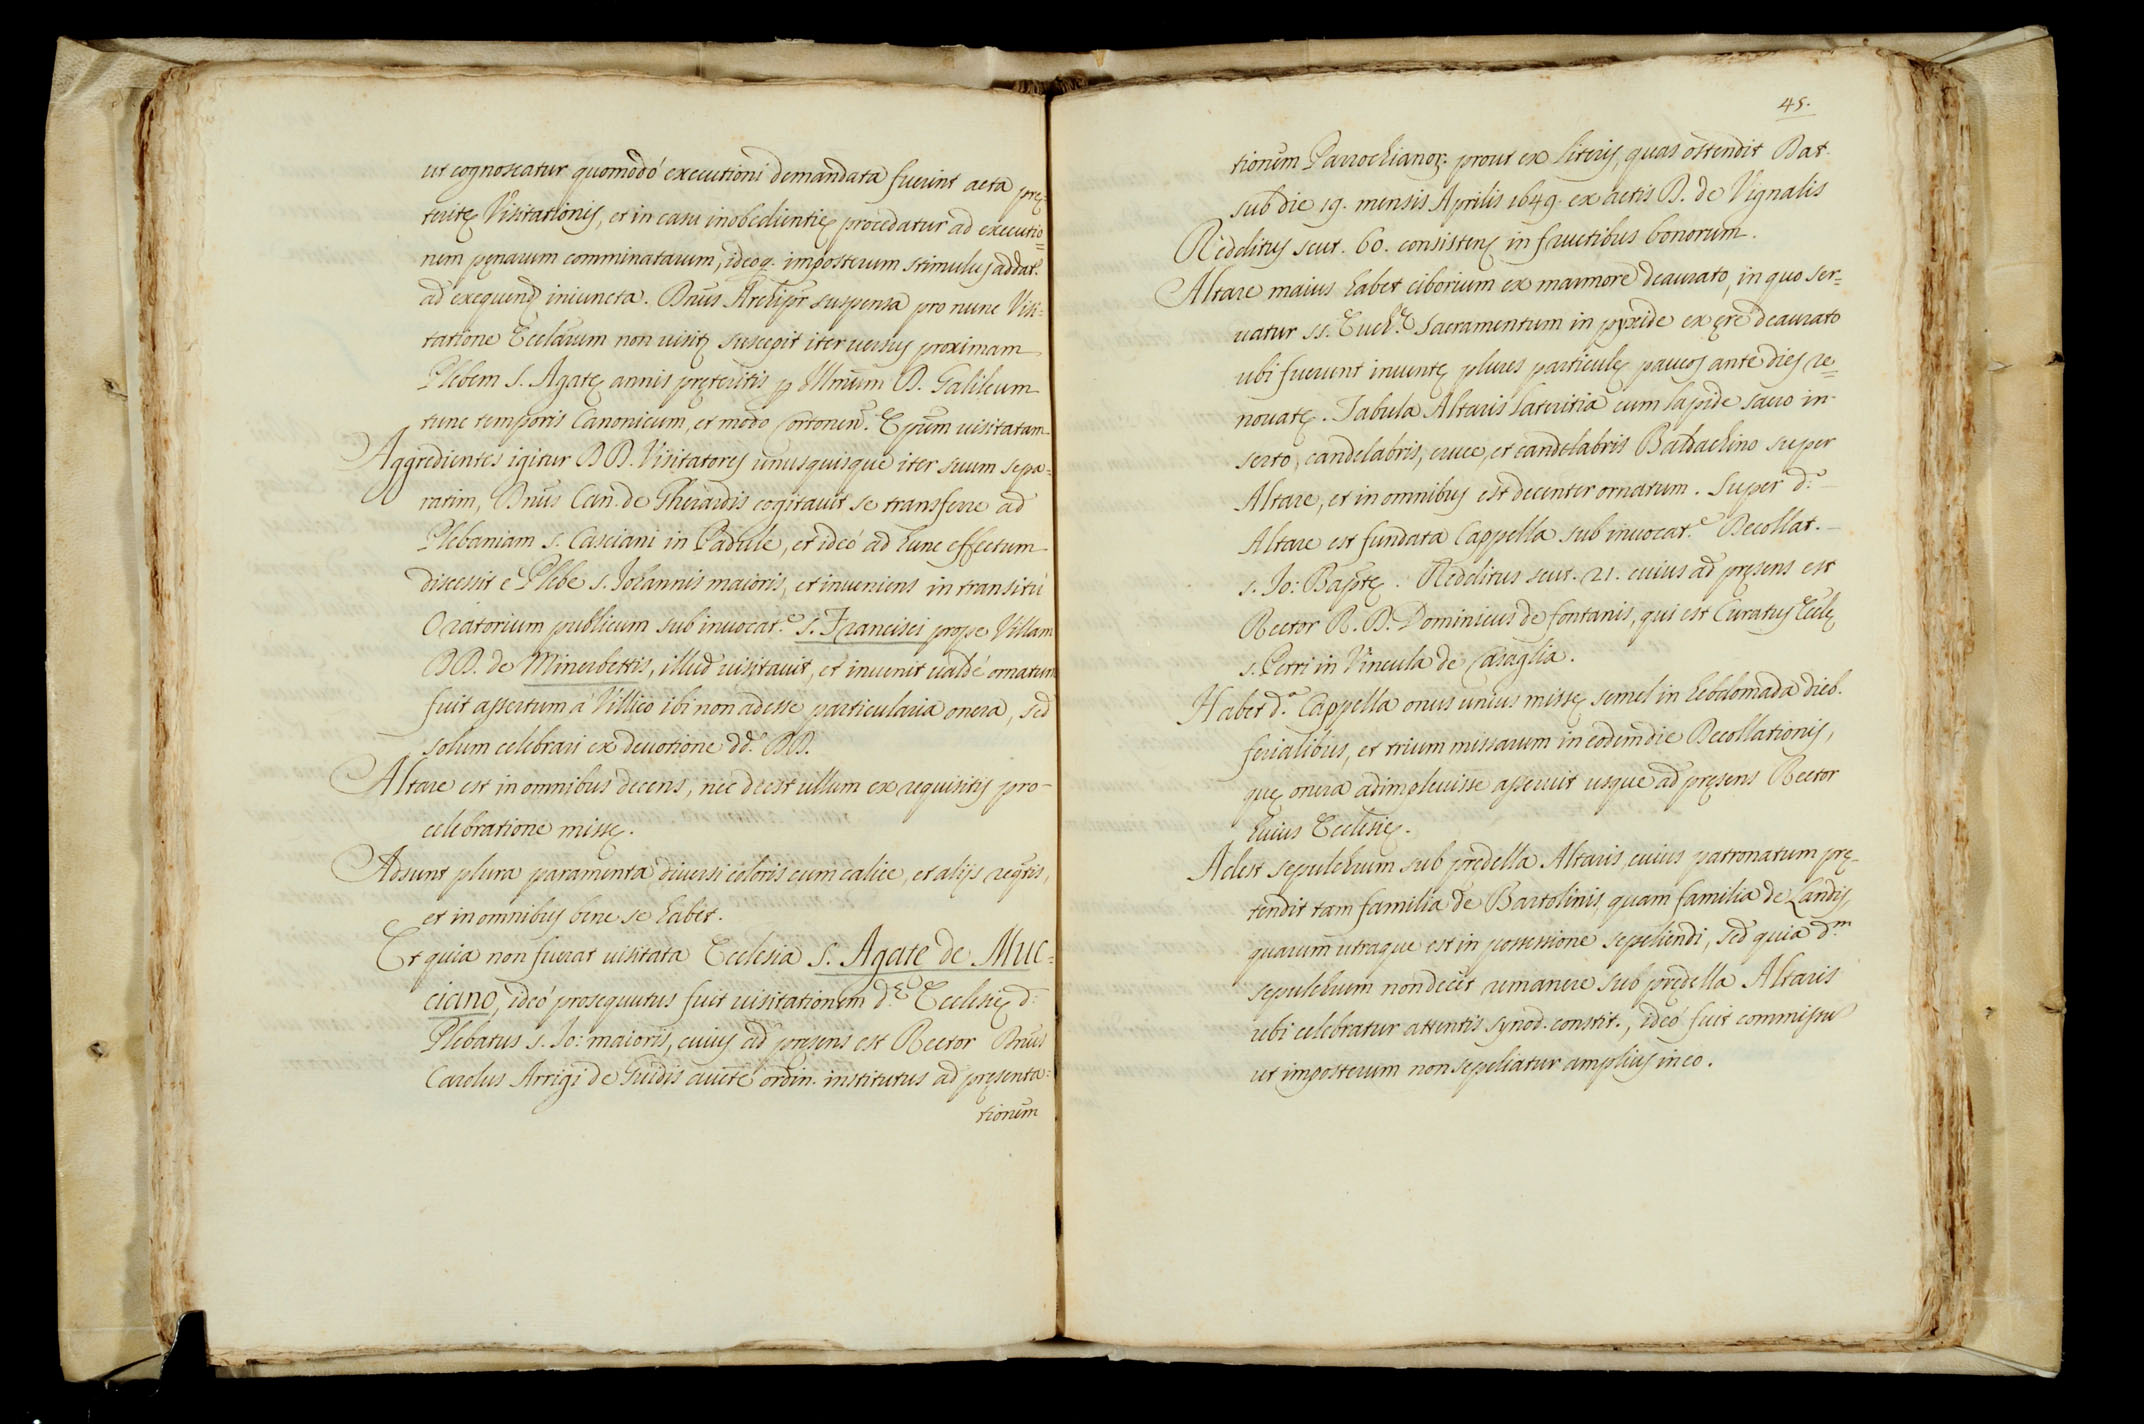 ut cognoscatur quomodó executioni demandata fuerint acta prę-
teritę Visitationis, et in casu inobedientię procedatur ad executio=
nem pęnarum comminatarum, ideoq. imposterum stimulus addat.
ad exequend iniuncta. Dnus Archipr suspensa pro nunc Visi=
tatione Ecclarum non visit suscepit iter versus proximam
Plebem S. Agatę annis pręteritis p Illmum D. Galileum
tunc temporis Canonicum, et modo Cortonen. Epum visitatam
Aggredientes igitur DD. Visitatores unusquisque iter suum sepa=
ratim, Dnus Can. de Gherardis cogitauit se transferre ad
Plebaniam S. Casciani in Padule, et ideó ad hunc effectum
discessit é Plebe S. Johannis maioris, et inueniens in transitu
Oratorium publicum sub inuocat.e S. Francisci prope Villam
DD. de Minerbettis, illud visitauit, et inuenit valdé ornatum
fuit assertum á Villico ibi non adesse particularia onera, sed
solum celebrari ex deuotione dd. DD.
Altare est in omnibus decens, nec deest ullum ex requisitis pro
celebratione missę.
Adsunt plura paramenta diuersi coloris cum calice, et alijs reqtis,
et in omnibus bene se habet.
Et quia non fuerat visitata Ecclesia S. Agate de Muc=
ciano, ideó prosequutus fuit visitationem d.ę Ecclesię d.
Plebatus S. Jo: maioris, cuius ad pręsens est Rector Dnus
Carolus Arrigi de Guidis aucte ordin. institutus ad pręsenta=
tionem
45.
tionem Parrochianor. prout ex literis, quas ostendit Dat.
sub die 19. mensis Aprilis 1649. ex actis D. de Vignalis
Redditus scut. 60. consistens in fructibus bonorum.
Altare maius habet ciborium ex marmore deaurato, in quo ser=
uatur SS. Euch.ę Sacramentum in pyxide ex ęre deaurato
ubi fuerunt inuentę plures particulę paucos ante dies re=
nouatę. Tabula Altaris lateritia cum lapide sacro in-
serto, candelabris, cruce, et candelabris Baldachino super
Altare, et in omnibus est decenter ornatum. Super d.o
Altare est fundata Cappella sub inuocat.e Decollat.
S. Jo: Baptę. Redditus scut. 21. cuius ad pręsens est
Rector R. D. Dominicus de fontanis, qui est Curatus Eccle
S. Petri in Vincula de Casaglia.
Habet d.a Cappella onus unius missę semel in hebdomada dieb.
ferialibus, et trium missarum in eodem die Decollationis,
quę onera adimpleuisse asseruit usque ad pręsens Rector
huius Ecclesię.
Adest sepulchrum sub predella Altaris, cuius patronatum prę-
tendit tam familia de Bartolinis, quam familia de Landis,
quarum utraque est in possessione sepeliendi, sed quia d.m
sepulchrum non decet remanere sub prędella Altaris
ubi celebratur attentis synod. constit., ideó fuit commissu
ut imposterum non sepeliatur amplius in eo.